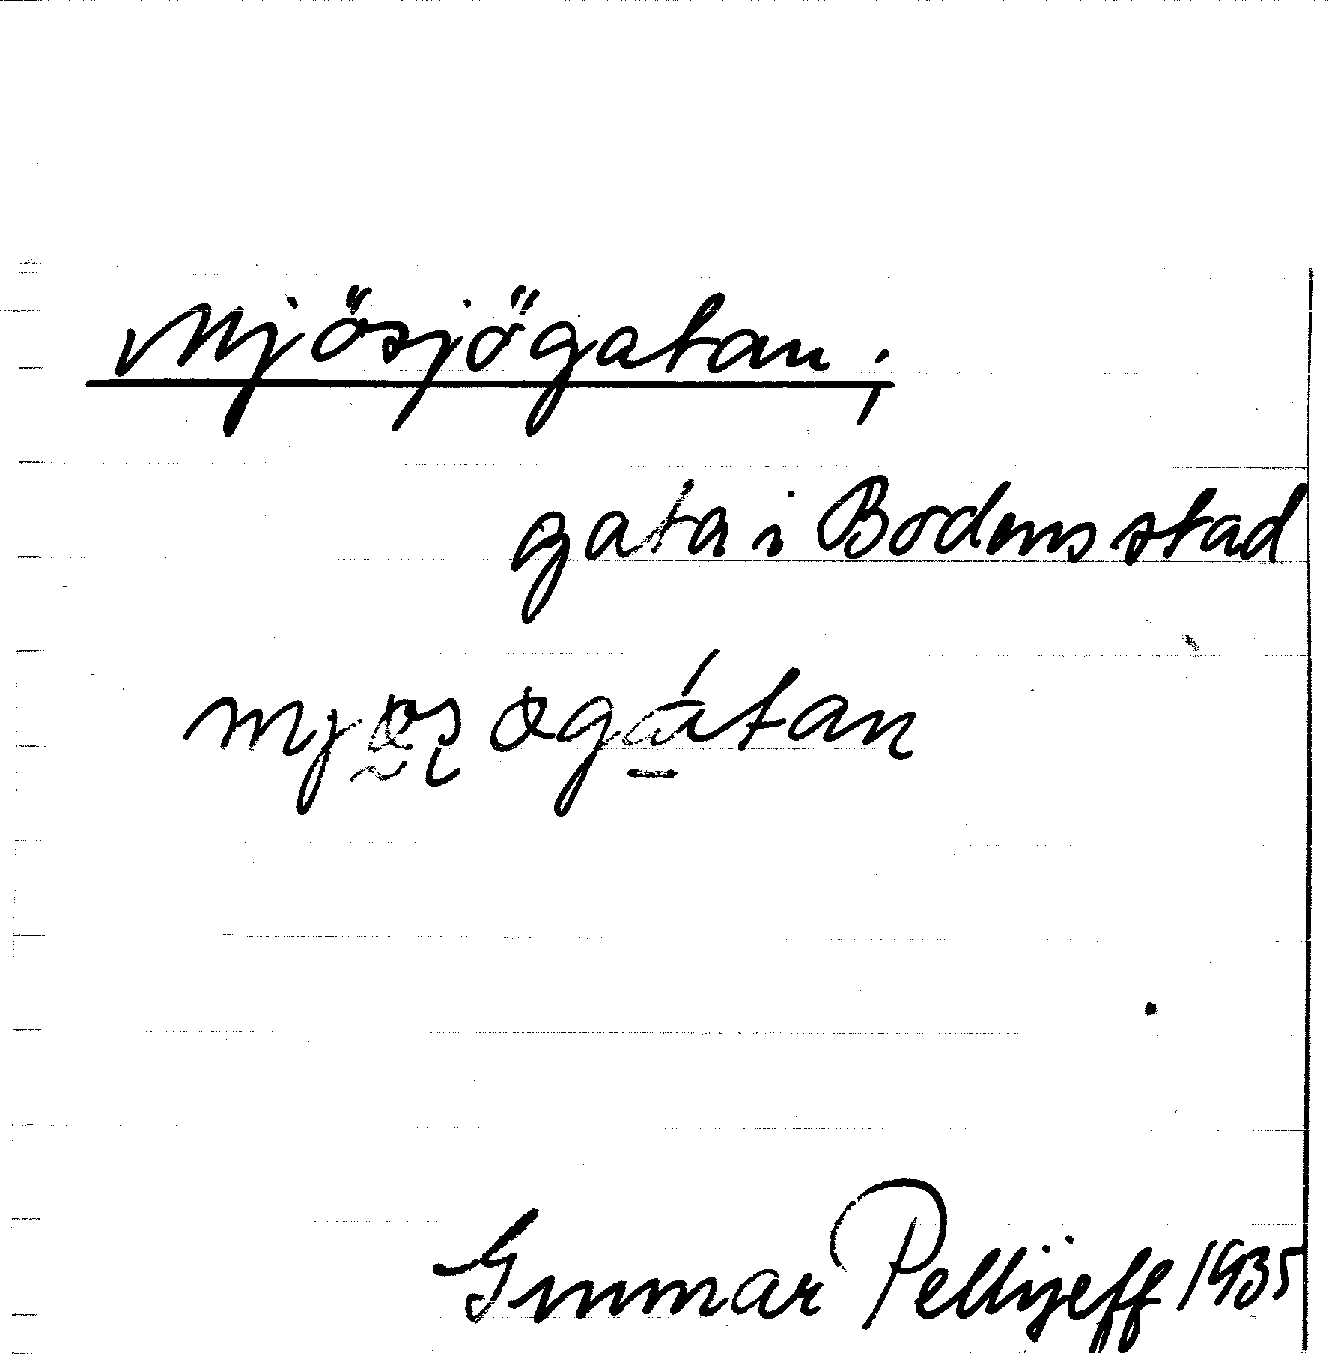 Mjösjögatan;
gata i Bodens stad
Gunnar Pellijeff 1935